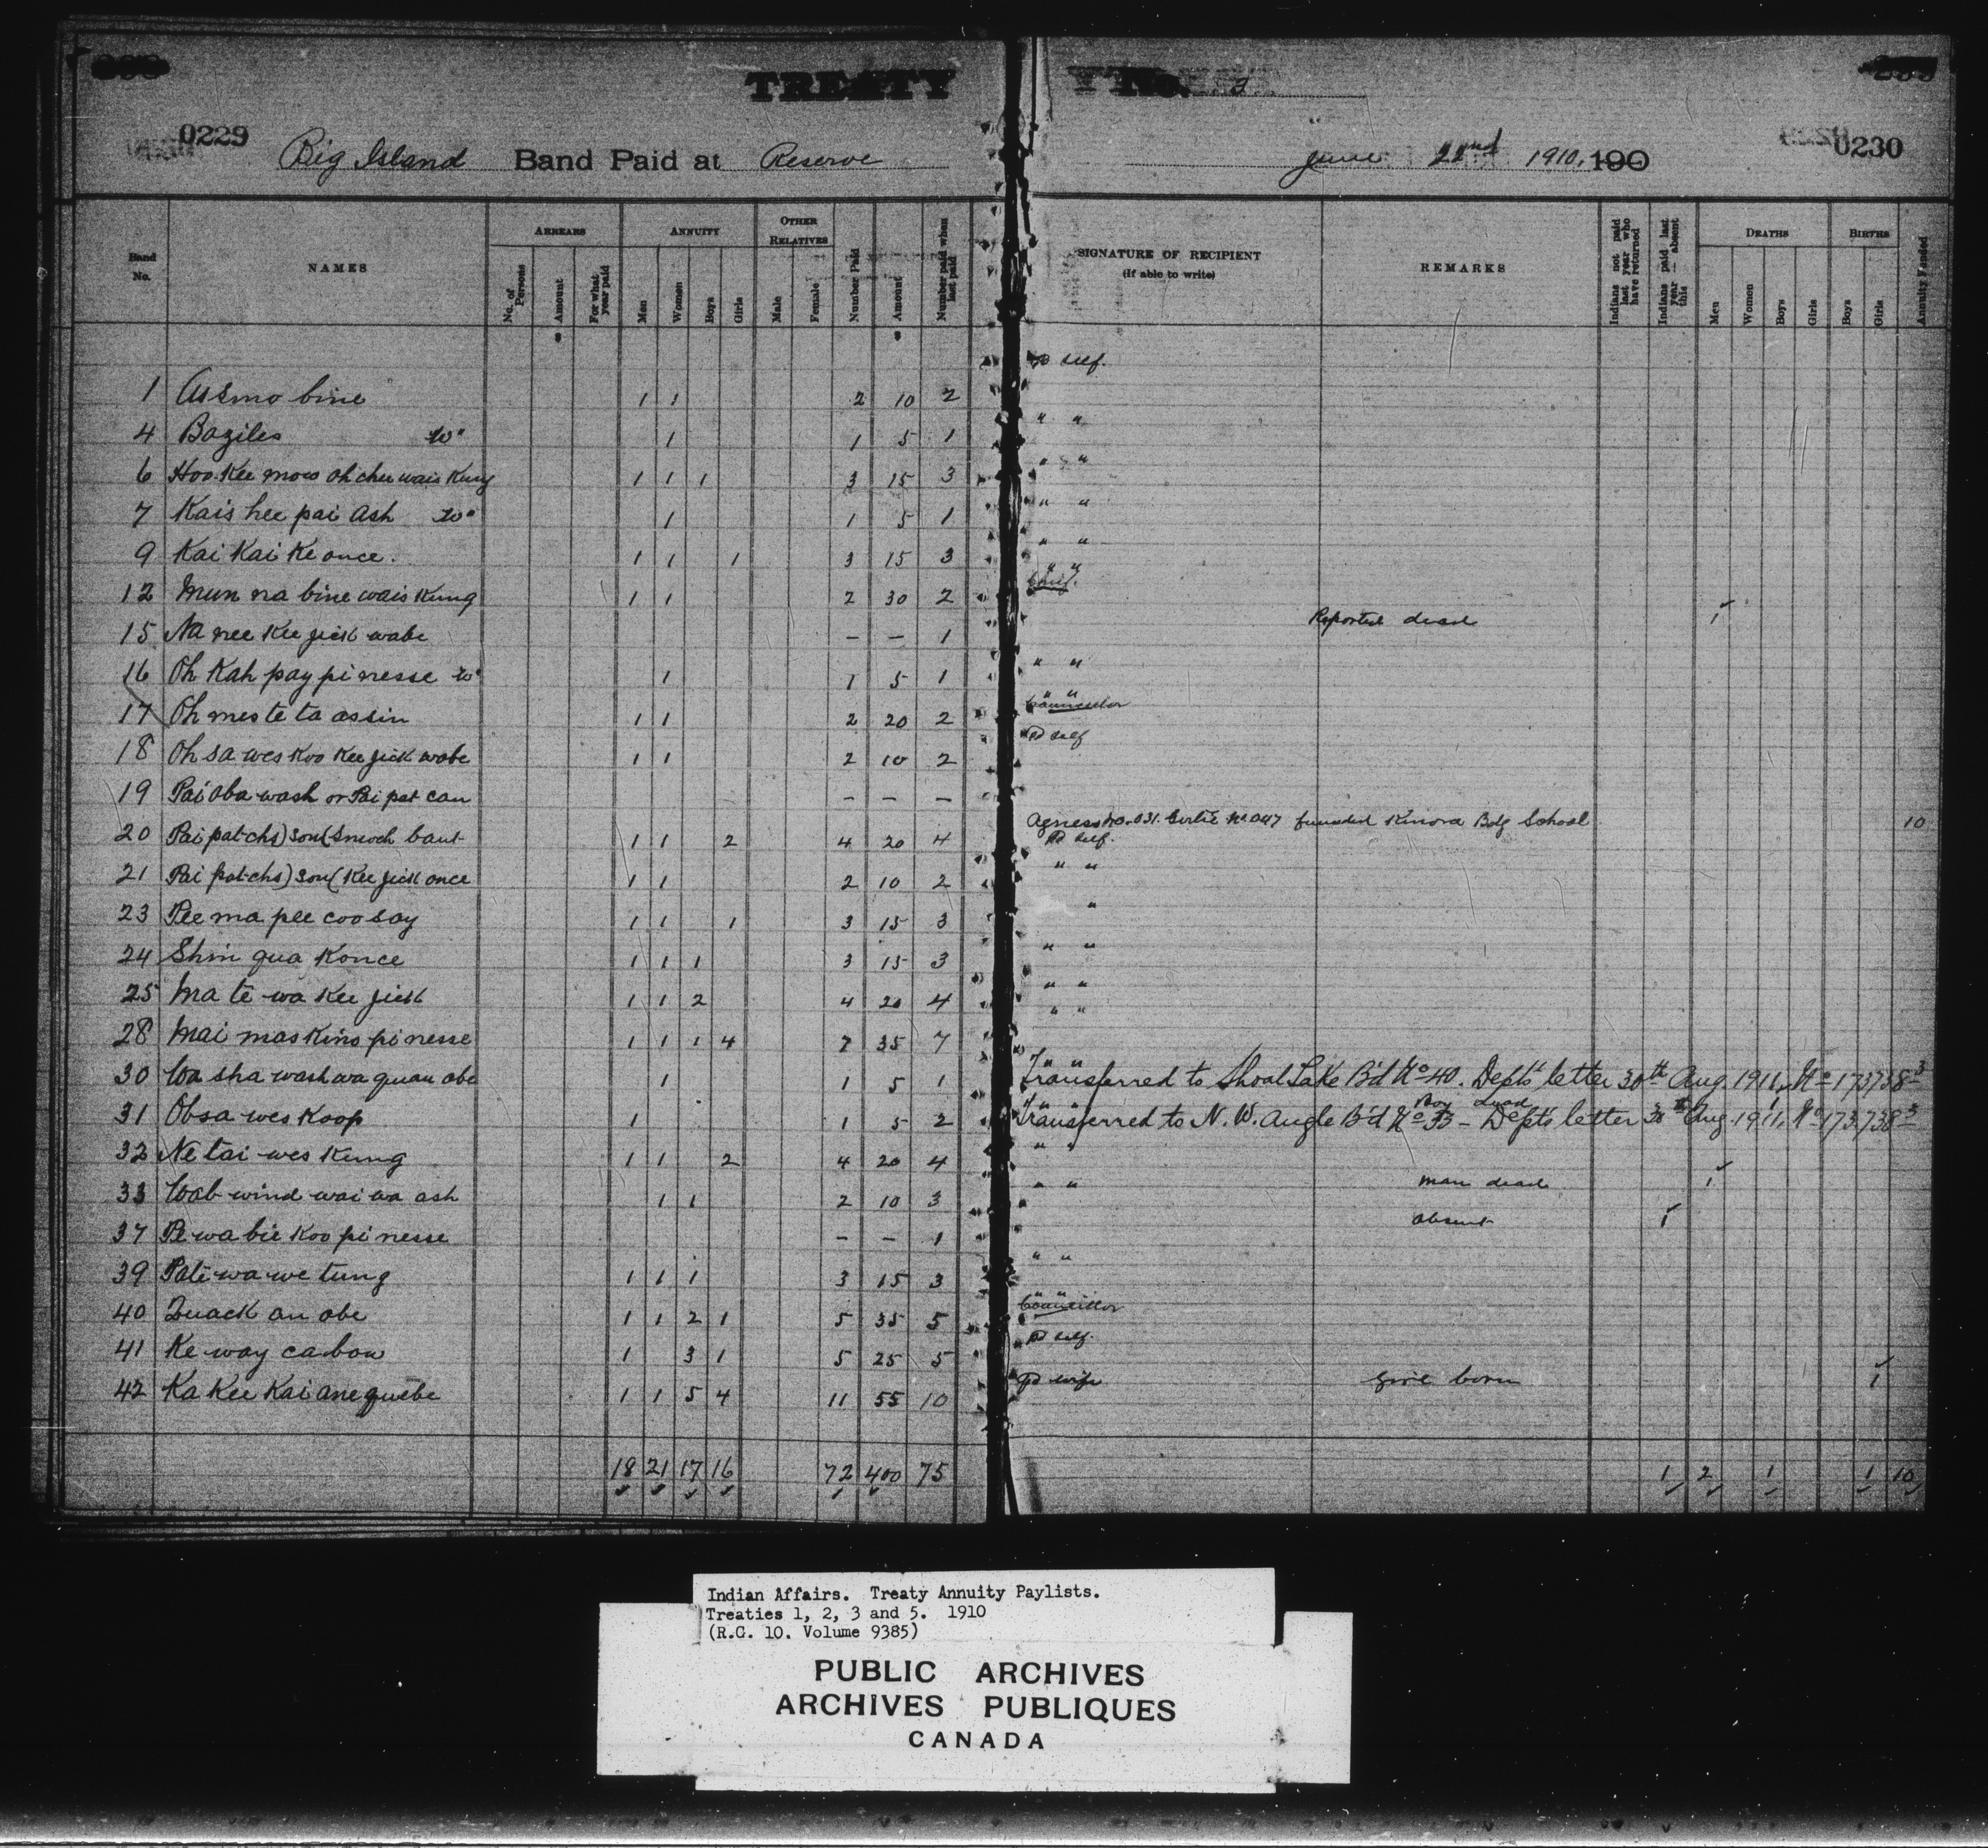 TREATY No. 3
0229 Big Island Band Paid at Reserve June 22nd 1910, 190 0230
Band No. NAMES ARREARS ANNUITY OTHER RELATIVES Number Paid Amount Number paid when last paid
No. of Persons Amount For what year paid Men Women Boys Girls Male Female
SIGNATURE OF RECIPIENT (If able to write) REMARKS Indians not paid last year who have returned Indians paid last year — absent this DEATHS BIRTHS Annuity Funded
Men Women Boys Girls Boys Girls
$ $
1 Assino bine 1 1 2 10 2 Pd self.
4 Baziles Wo 1 1 5 1 " "
6 Hoo Kee mow oh chee wais Kung 1 1 1 3 15 3 " "
7 Kais hee pai Ash Wo 1 1 5 1 " "
9 Kai Kai Ke once. 1 1 1 3 15 3 " "
12 Mun na bine wais Kung 1 1 2 30 2 " " Chief.
15 Na nee Kee jick wabe – – 1 Reported dead 1
16 Oh Kah pay pi nesse Wo 1 1 5 1 " "
17 Oh mes te ta assin 1 1 2 20 2 " " Councillor
18 Oh sa wes Koo Kee jick wabe 1 1 2 10 2 Pd self
19 Pai oba wash or Pai pat can – – –
20 Pai pat chs) son ( 1 1 2 4 20 4 Agness No. 031. Certie No 047 funded Kenora Bdg School 10
Pd self.
21 Pai pat chs) son (Kee jick once 1 1 2 10 2 " "
23 Pee ma pee coo say 1 1 1 3 15 3 "
24 Shin gua Konce 1 1 1 3 15 3 " "
25 Ma te wa Kee jick 1 1 2 4 20 4 " "
28 Mai mas Kino pi nesse 1 1 1 4 7 35 7 " "
30 Wa sha wash wa quan abe 1 1 5 1 " " Transferred to Shoal Lake B'd No 40. Dept's letter 30th Aug 1911, No 173738-3
31 Obsa wes Koop 1 1 5 2 " " Transferred to N. W. Angle B'd No 33 – Dept's letter 30th Aug 1911, No 173738-3
Boy dead 1
32 Ne tai wes Kung 1 1 2 4 20 4 " "
33 Wab wind wai wa ash 1 1 2 10 3 " " Man dead 1
37 Pe wa bic Koo pi nesse – – 1 absent 1
39 Pate wa we tung 1 1 1 3 15 3 " "
40 Quack an abe 1 1 2 1 5 35 5 " " Councillor
41 Ke way ca bow 1 3 1 5 25 5 Pd self.
42 Ka Kee Kai ane quebe 1 1 5 4 11 55 10 Pd wife Girl born 1
18 21 17 16 72 400 75 1 2 1 1 10
Indian Affairs. Treaty Annuity Paylists.
Treaties 1, 2, 3 and 5. 1910
(R.G. 10. Volume 9385)
PUBLIC ARCHIVES
ARCHIVES PUBLIQUES
CANADA